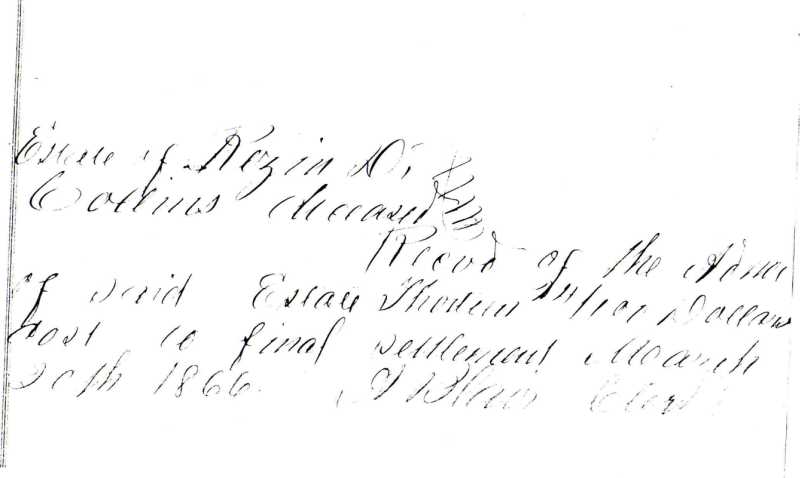 Estate of Rezin D.
Collins deceased
Recvd of the Admr
of said Estate Thirteen /100 Dollars
Cost to final settlement March
20th 1866 Clerk